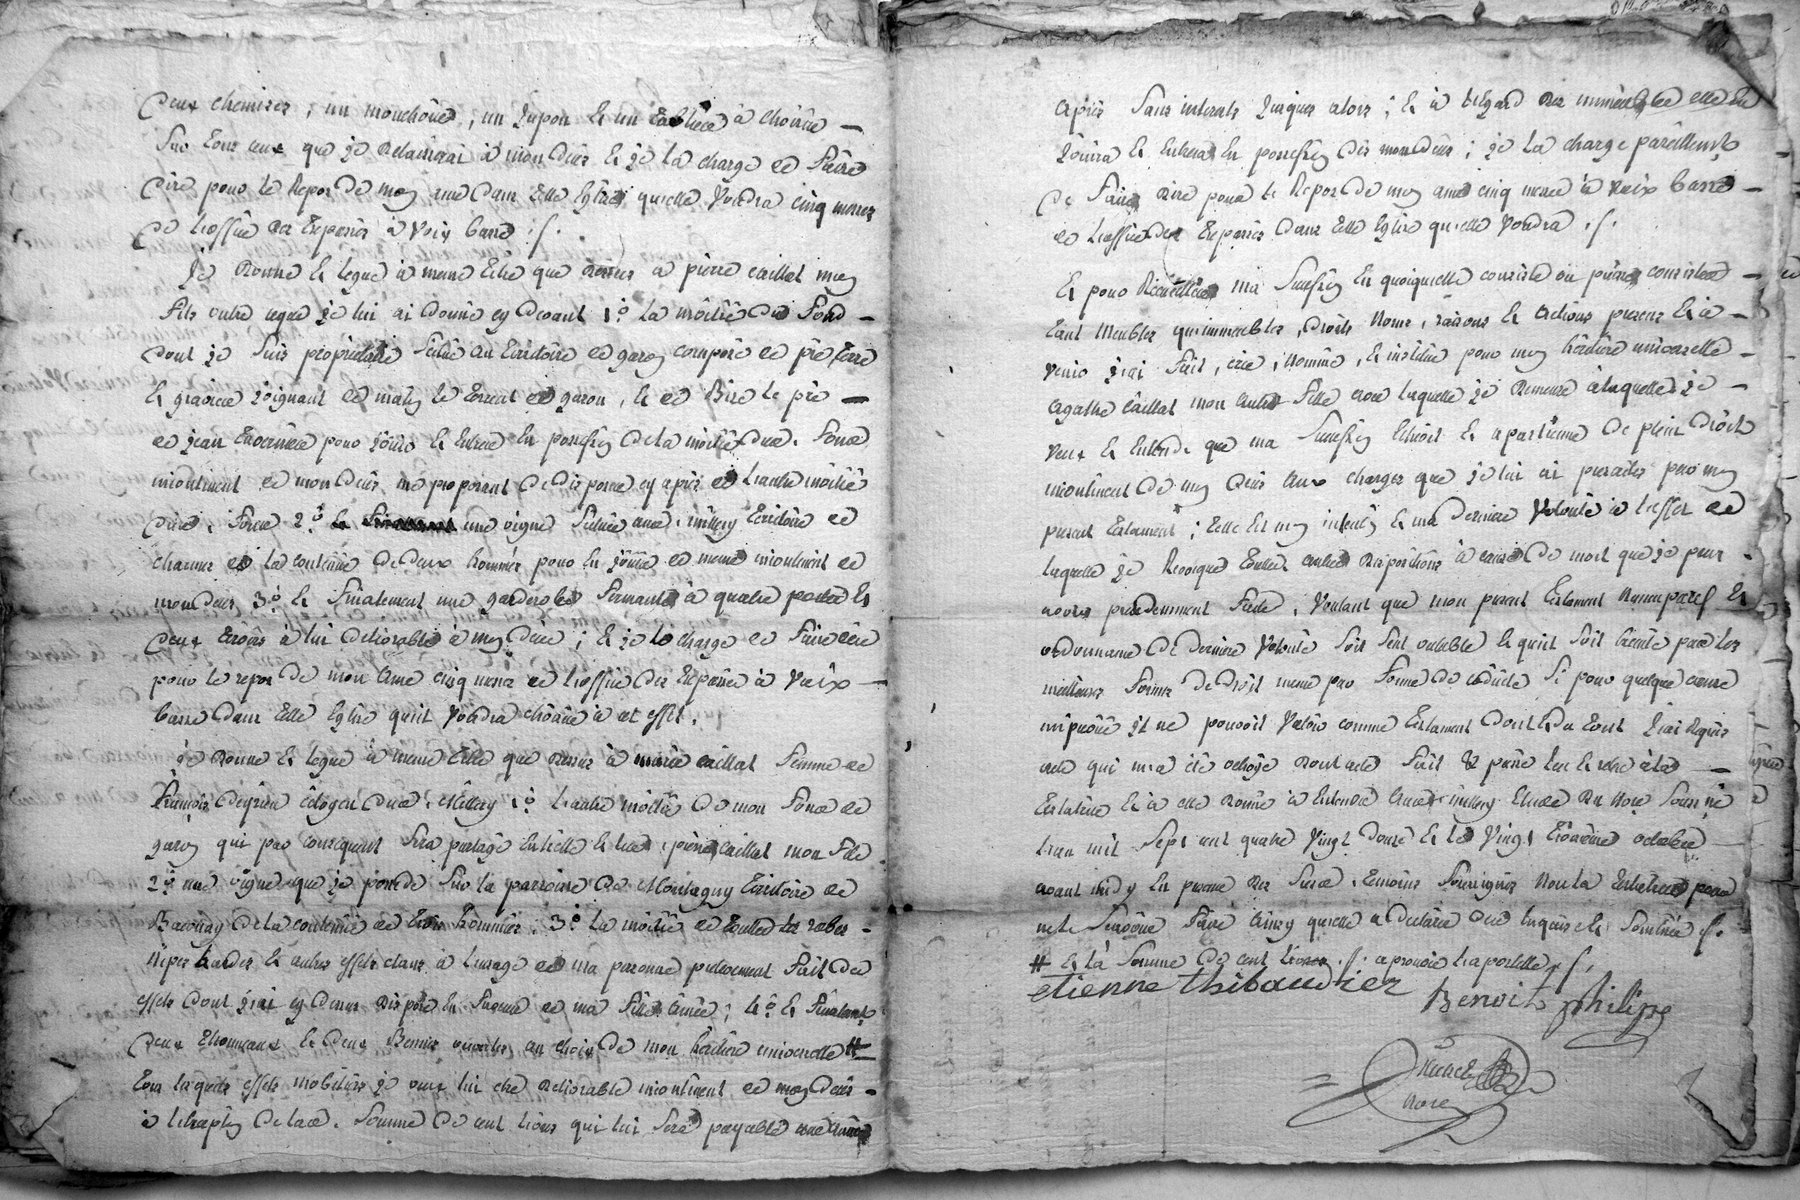 deux chemises, un mouchoir, un jupon et un tablier à choisir
sur tous ceux que je delaisserai à mon deces et je la charge de faire
dire pour le repos de mon ame dans telle Eglise quelle voudra cinq messes
de l'office des trepassés à voix basse
Je donne et legue à meme titre que dessus a pierre caillat mon
fils outre ceque je lui ai donné cy devant 1° la moitié du fond
dont je suis proprietaire situé au territoire de garon composé de pré terre
et gravier joignant de matin le torrent de garon, et de Bise le pré
de jean pour jouir et entrer en possession de la moitié dud. fond
incontinent de mon deces me proposant de disposer cy apres de l'autre moitié
2° une vigne située aud. millery territoire de
la contenue de deux hommées pour en jouir de meme incontinent de
mon deces 3° et finalement une garderobe fermante à quatre portes et
deux tiroirs à lui delivrable à mon deces ; et je le charge de faire dire
pour le repos de mon ame cinq messes de l'office des trepassés à voix
basse dans telle Eglise qu'il voudra choisir à cet effet.
je donne et legue à meme titre que dessus à marie caillat femme de
françois citoyen dud. Millery 1° l'autre moitié de mon fond de
garon qui par consequent sera partagé entr'elle et led. pierre caillat mon fils
2° une vigne que je possede sur la parroisse de Montagny territoire de
de la contenue de trois hommées. 3° la moitié de toutes les robes
nipes hardes et autres effets etant à l'usage de ma personne
effets dont j'ai cy dessus disposé en faveur de ma fille ainée ; 4° et finalement
deux tonneaux et deux Bennes au choix de mon héritiere universelle #
tous lesquels effets mobiliers je veux lui etre delivrable incontinent de mon deces
à l'exception de lad. somme de cent livres qui lui sera payable une année
apres sans interets jusques alors ; et à l'egard des immeubles elle en
jouira et entrera en possession dès mon deces ; je la charge pareillement
de faire dire pour le repos de mon ame cinq messes à voix basse
de l'office des trepassés dans telle Eglise quelle voudra
Et pour Recueillir ma succession en quoiquelle consiste ou puisse consister
tant meubles qu'immeubles, droits noms, raisons et actions presens et à
venir j'ai fait, créé, nommé, et institué pour mon héritiere universelle
agathe caillat mon autre fille avec laquelle je demeure à laquelle je
veux et entends que ma succession echoit et apartienne de plein droit
incontinent de mon deces aux charges que je lui ai par mon
present testament ; telle est mon intention et ma derniere volonté à l'effet de
laquelle je revoque toutes autres dispositions à cause de mort que je peux
avoir precedemment faite, voulant que mon present testament et
ordonnance de derniere volonté soit seul valable et qu'il soit executé par les
meilleures formes de droit meme par forme de codicile si pour quelque cause
imprevue il ne pouvoit valoir comme testament dont et du tout j'ai requis
acte qui m'a eté octroyé dont acte fait & passé leu et relue à la
testatrice et à elle donné à entendre aud. millery Etude du No.re soussigné
l'an mil sept cent quatre vingt douze et le vingt troisieme octobre
avant midy en presence des susd. temoins soussignés non la testatrice pour
ne le sçavoir faire ainsy quelle a declaré de ce enquise et sommée
# et la somme de cent livres aprouvé l'apostille
etienne thibaudier
Benoit philippe